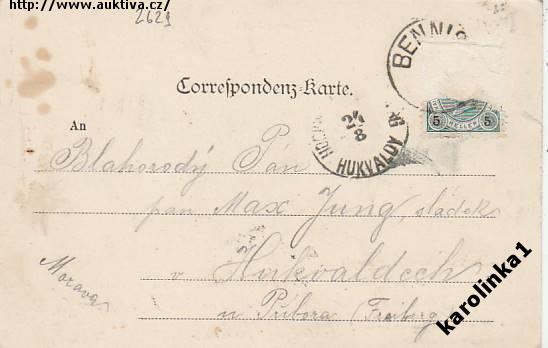 http://www.auktiva.cz/
2629
BENNIS
Correspondenz-Karte.
5 HELLER 5
24
8
HUKVALDY
An
Blahorodý Pán
pan Max Jung, sládek
v Hukvaldech
Morava
u Příbora (Freiberg)
karolinka1